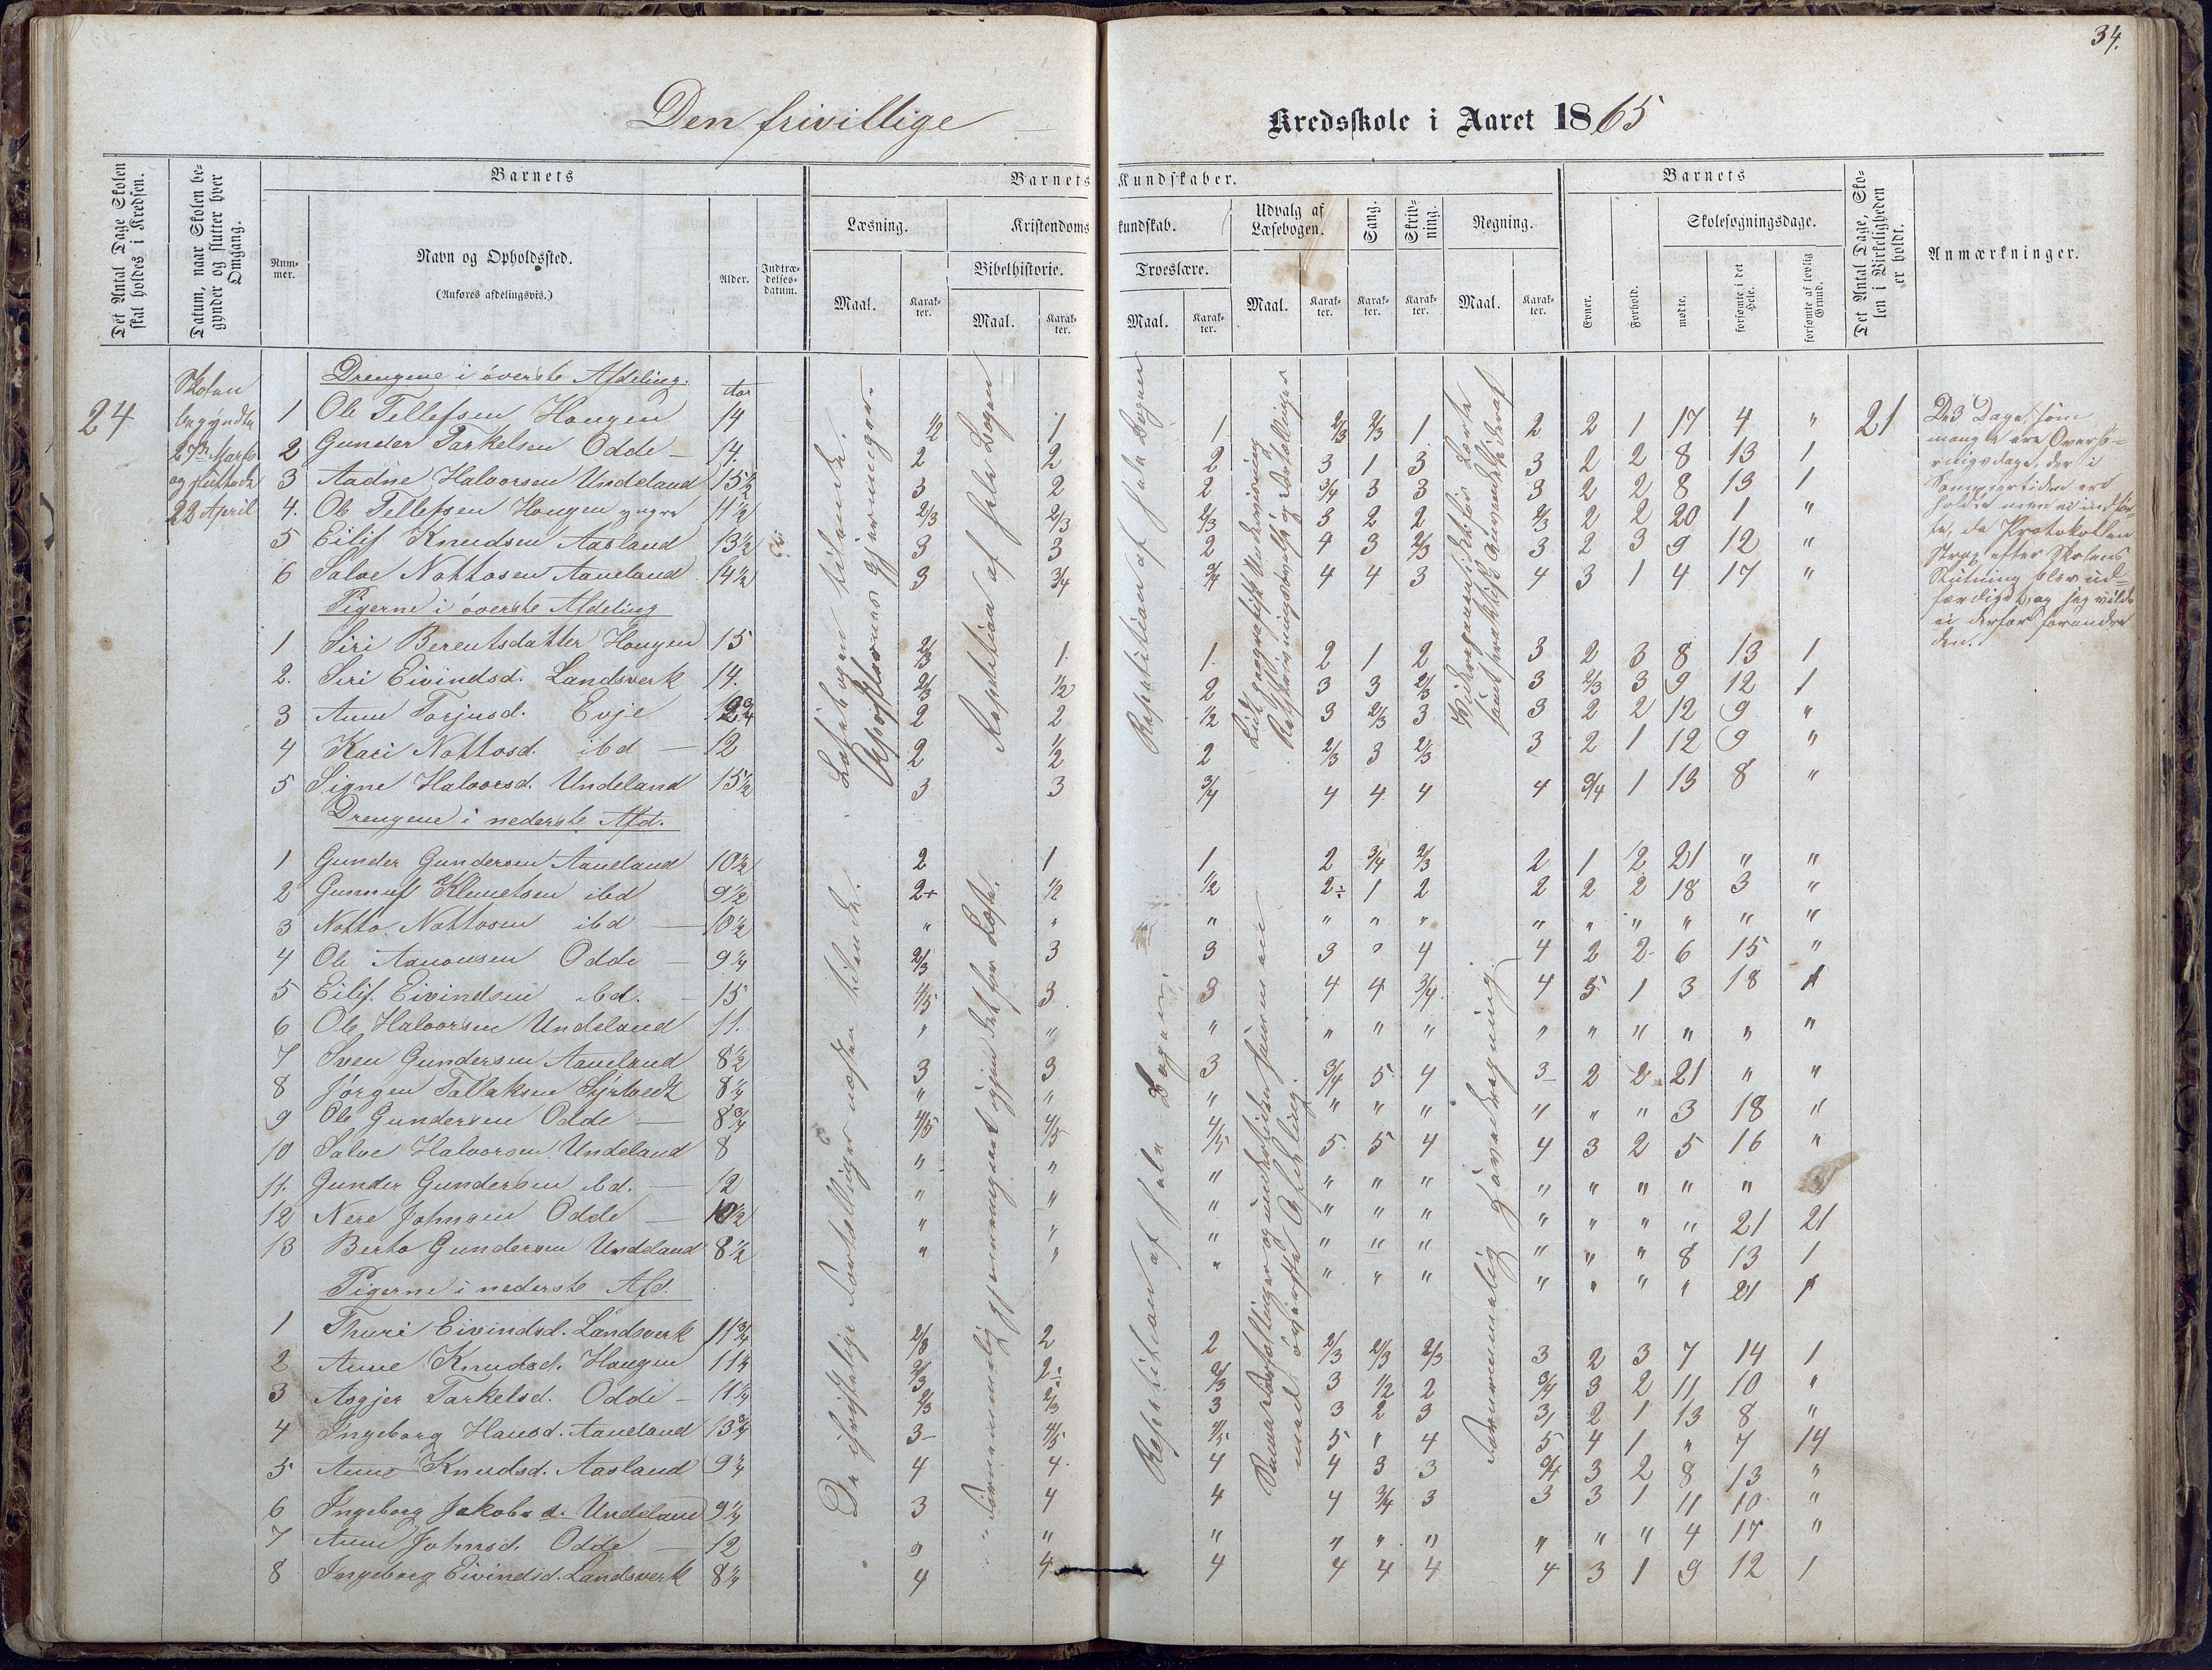 34.
Den frivillige Kredsskole i Aaret 1865
Det Antal Dage Skolen skal holdes i Kredsen.
Datum, naar Skolen begynder og slutter hver Omgang.
Barnets
Nummer.
Navn og Opholdssted.
(Anføres afdelingsvis.)
Alder.
Indtrædelsesdatum.
Barnets Kundskaber.
Læsning.
Maal.
Karakter.
Kristendomskundskab.
Bibelhistorie.
Maal.
Karakter.
Troeslære.
Maal.
Karakter.
Udvalg af Læsebogen.
Maal.
Karakter.
Sang.
Karakter.
Skrivning.
Karakter.
Regning.
Maal.
Karakter.
Barnets
Evner.
Forhold.
Skolesøgningsdage.
mødte.
forsømte i det Hele.
forsømte af lovlig Grund.
Det Antal Dage, Skolen i Virkeligheden er holdt.
Anmærkninger.
24
Skolen
begyndte
27de Marts
og sluttede
22 April
Drengene i øverste Afdeling.
Aar
1 Ole Tellefsen Hougen 14 1/2 1 1 2/3 2/3 1 2 2 1 17 4 " 21
2 Gunder Tarkelsen Odde - 14. 2 2 2 3 1 3 3 2 2 8 13 1
3 Aadne Halvorsen Undeland 15 1/2 3 2 2 3/4 3 3 3 2 2 8 13 1
4. Ole Tellefsen Hougen yngre 11 1/2 2/3 2/3 2/3 3 2 2 2/3 2 2 20 1 "
5 Eilif Knudsen Aasland 13 1/2 3 3 2 4 3 2/3 3 2 3 9 12 "
6 Salve Nottosen Aaneland 14 1/2 3 3/4 3/4 4 4 3 4 3 1 4 17 "
Pigerne i øverste Afdeling
1 Siri Berentsdatter Hougen 15 2/3 1. 1. 2 1 2 3 2 3 8 13 1
2. Siri Eivindsd. Landsverk 14. 2/3 1/2 2 3 3 2/3 3 2/3 3 9 12 1
3 Anne Torjusd. Evje 2 2 1/2 3 2/3 3 3 2 2 12 9 "
4 Kari Nottosd. ibd - 12 2 1/2 2 2/3 3 2/3 3 2 1 12 9 "
5 Signe Halvorsd. Undeland 15 1/2 3 3 3/4 4 4 4 4 3/4 1 13 8 "
Drengene i nederste Afd.
1 Gunder Gundersen Aaneland 10 1/2 2 1 1 2 3/4 2/3 2 1 2 21 " "
2 Gunnuf Klemetsen ibd 9 1/2 2+ 1/2 1/2 2÷ 1 2 2 2 2 18 3 "
3 Notto Nottosen ibd - 10 1/2 " " " " " " " " " " " "
4 Ole Aanonsen Odde - 9 1/4 2/3 3 3 3 " 4 4 2 2 6 15 "
5 Eilif Eivindsen ibd. - 15 4/5 3 3 4 4 3/4 4 5 1 3 18 1
6 Ole Halvorsen Undeland 11. " " " " " " " " " " " "
7 Sven Gundersen Aaneland 8 1/2 3 3 3 3/4 5 4 3 2 2 21 " "
8 Jørgen Tallaksen 8 1/4 " " " " " " " " " 3 18 "
9 Ole Gundersen Odde - 8 3/4 4/5 4/5 4/5 5 5 4 4 3 2 5 16 "
10 Salve Halvorsen Undeland 8 " " " " " " " " " " "
11. Gunder Gundersen ibd. - 12 " " " " " " " " " " 21 21
12 Nere Johnsen Odde - " " " " " " " " " 8 13 1
13 Berto Gundersen Undeland 8 1/2 " " " " " " " " " " 21 1
Pigerne i nederste Afd.
1 Thuri Eivindsd. Landsverk 11 3/4 2/3 2 2 2/3 2/3 2/3 3 2 3 7 14 1
2 Anne Knudsd. Hougen 11 1/4 2/3 2÷ 2/3 3 1/2 2 3/4 3 2 11 10 "
3 Asgjer Tarkelsd. Odde - 11 1/4 2/3 2/3 3 3 2 3 3 2 1 13 8 "
4 Ingeborg Hansd. Aaneland 13 3/4 3- 4/5 4/5 5 " 4 5 4 1 " 7 14
5 Anne Knudsd. Aasland 9 1/4 4 4. 4 4 3 3 3/4 3 2 8 13 "
6 Ingeborg Jakobsd. Undeland 9 1/4 3 4 4 4 3/4 3 3 3 1 11 10 "
7 Anne Johnsd. Odde - 12 " " " " " " " " " 4 17 "
8 Ingeborg Eivindsd. Landsverk 8 1/4 4 4 4 4 4 4 4 3 1 9 12 1
Læsebogen tilende.
Repetition af hele Bogen
Repetition af hele Bogen
De 3 Dage, som
mangle ere
dage, der i
Sommertiden ere
holdte men ei indfør-
te, da Protokollen
strax efter Skolens
Slutning blev ud-
færdiget, og jeg vilde
ei derfor forandre
den.